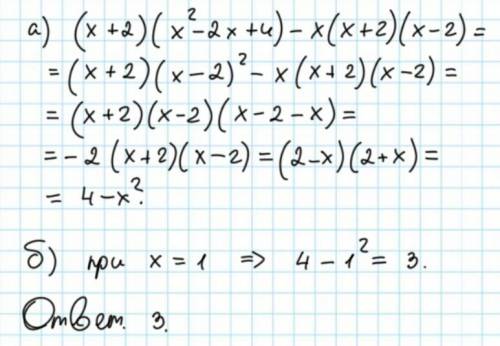 а) (x+2)(x²-2x+4)-x(x+2)(x-2)=
=(x+2)(x-2)²-x(x+2)(x-2)=
=(x+2)(x-2)(x-2-x)=
=-2(x+2)(x-2)=(2-x)(2+x)=
= 4-x².
б) при x=1 => 4-1²= 3.
Ответ. 3.